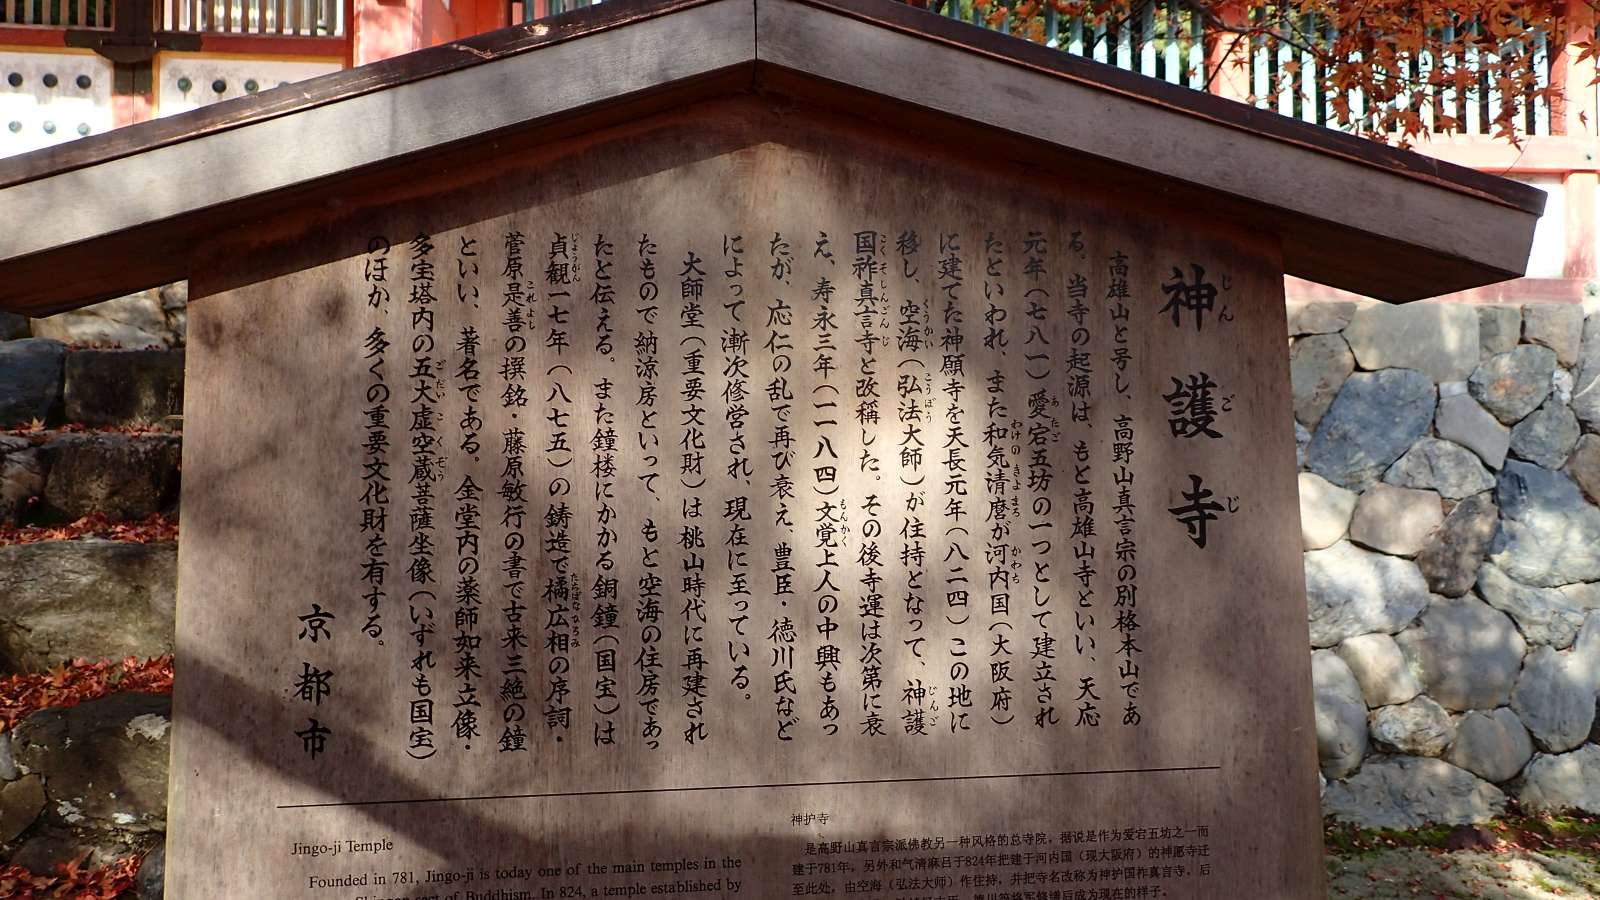 神護寺
じんごじ
高雄山と号し、高野山真言宗の別格本山であ
る。当寺の起源は、もと高雄山寺といい、天応
元年(七八一)愛宕五坊の一つとして建立され
あたご
たといわれ、また和気清麿が河内国(大阪府)
わけのきよまろ
かわち
に建てた神願寺を天長元年(八二四)この地に
移し、空海(弘法大師)が住持となって、神護
くうかい
こうぼう
じんご
国祚真言寺と改稱した。その後寺運は次第に衰
こくそしんごんじ
え、寿永三年(一一八四)文覚上人の中興もあっ
もんかく
たが、応仁の乱で再び衰え、豊臣・徳川氏など
によって漸次修営され、現在に至っている。
大師堂(重要文化財)は桃山時代に再建され
たもので納涼房といって、もと空海の住房であっ
たと伝える。また鐘楼にかかる銅鐘(国宝)は
貞観一七年(八七五)の鋳造で橘広相の序詞・
じょうがん
たちばなひろみ
菅原是善の撰銘・藤原敏行の書で古来三絶の鐘
これよし
といい、著名である。金堂内の薬師如来立像・
多宝塔内の五大虚空蔵菩薩坐像(いずれも国宝)
ごだいこくぞう
のほか、多くの重要文化財を有する。
京都市
Jingo-ji Temple
Founded in 781, Jingo-ji is today one of the main temples in the
sect of Buddhism. In 824, a temple established by
神护寺
是高野山真言宗派佛教另一种风格的总寺院，据说是作为爱宕五坊之一而
建于781年，另外和气清麻吕于824年把建于河内国（现大阪府）的神愿寺迁
至此处，由空海（弘法大师）作住持，并把寺名改称为神护国祚真言寺。后